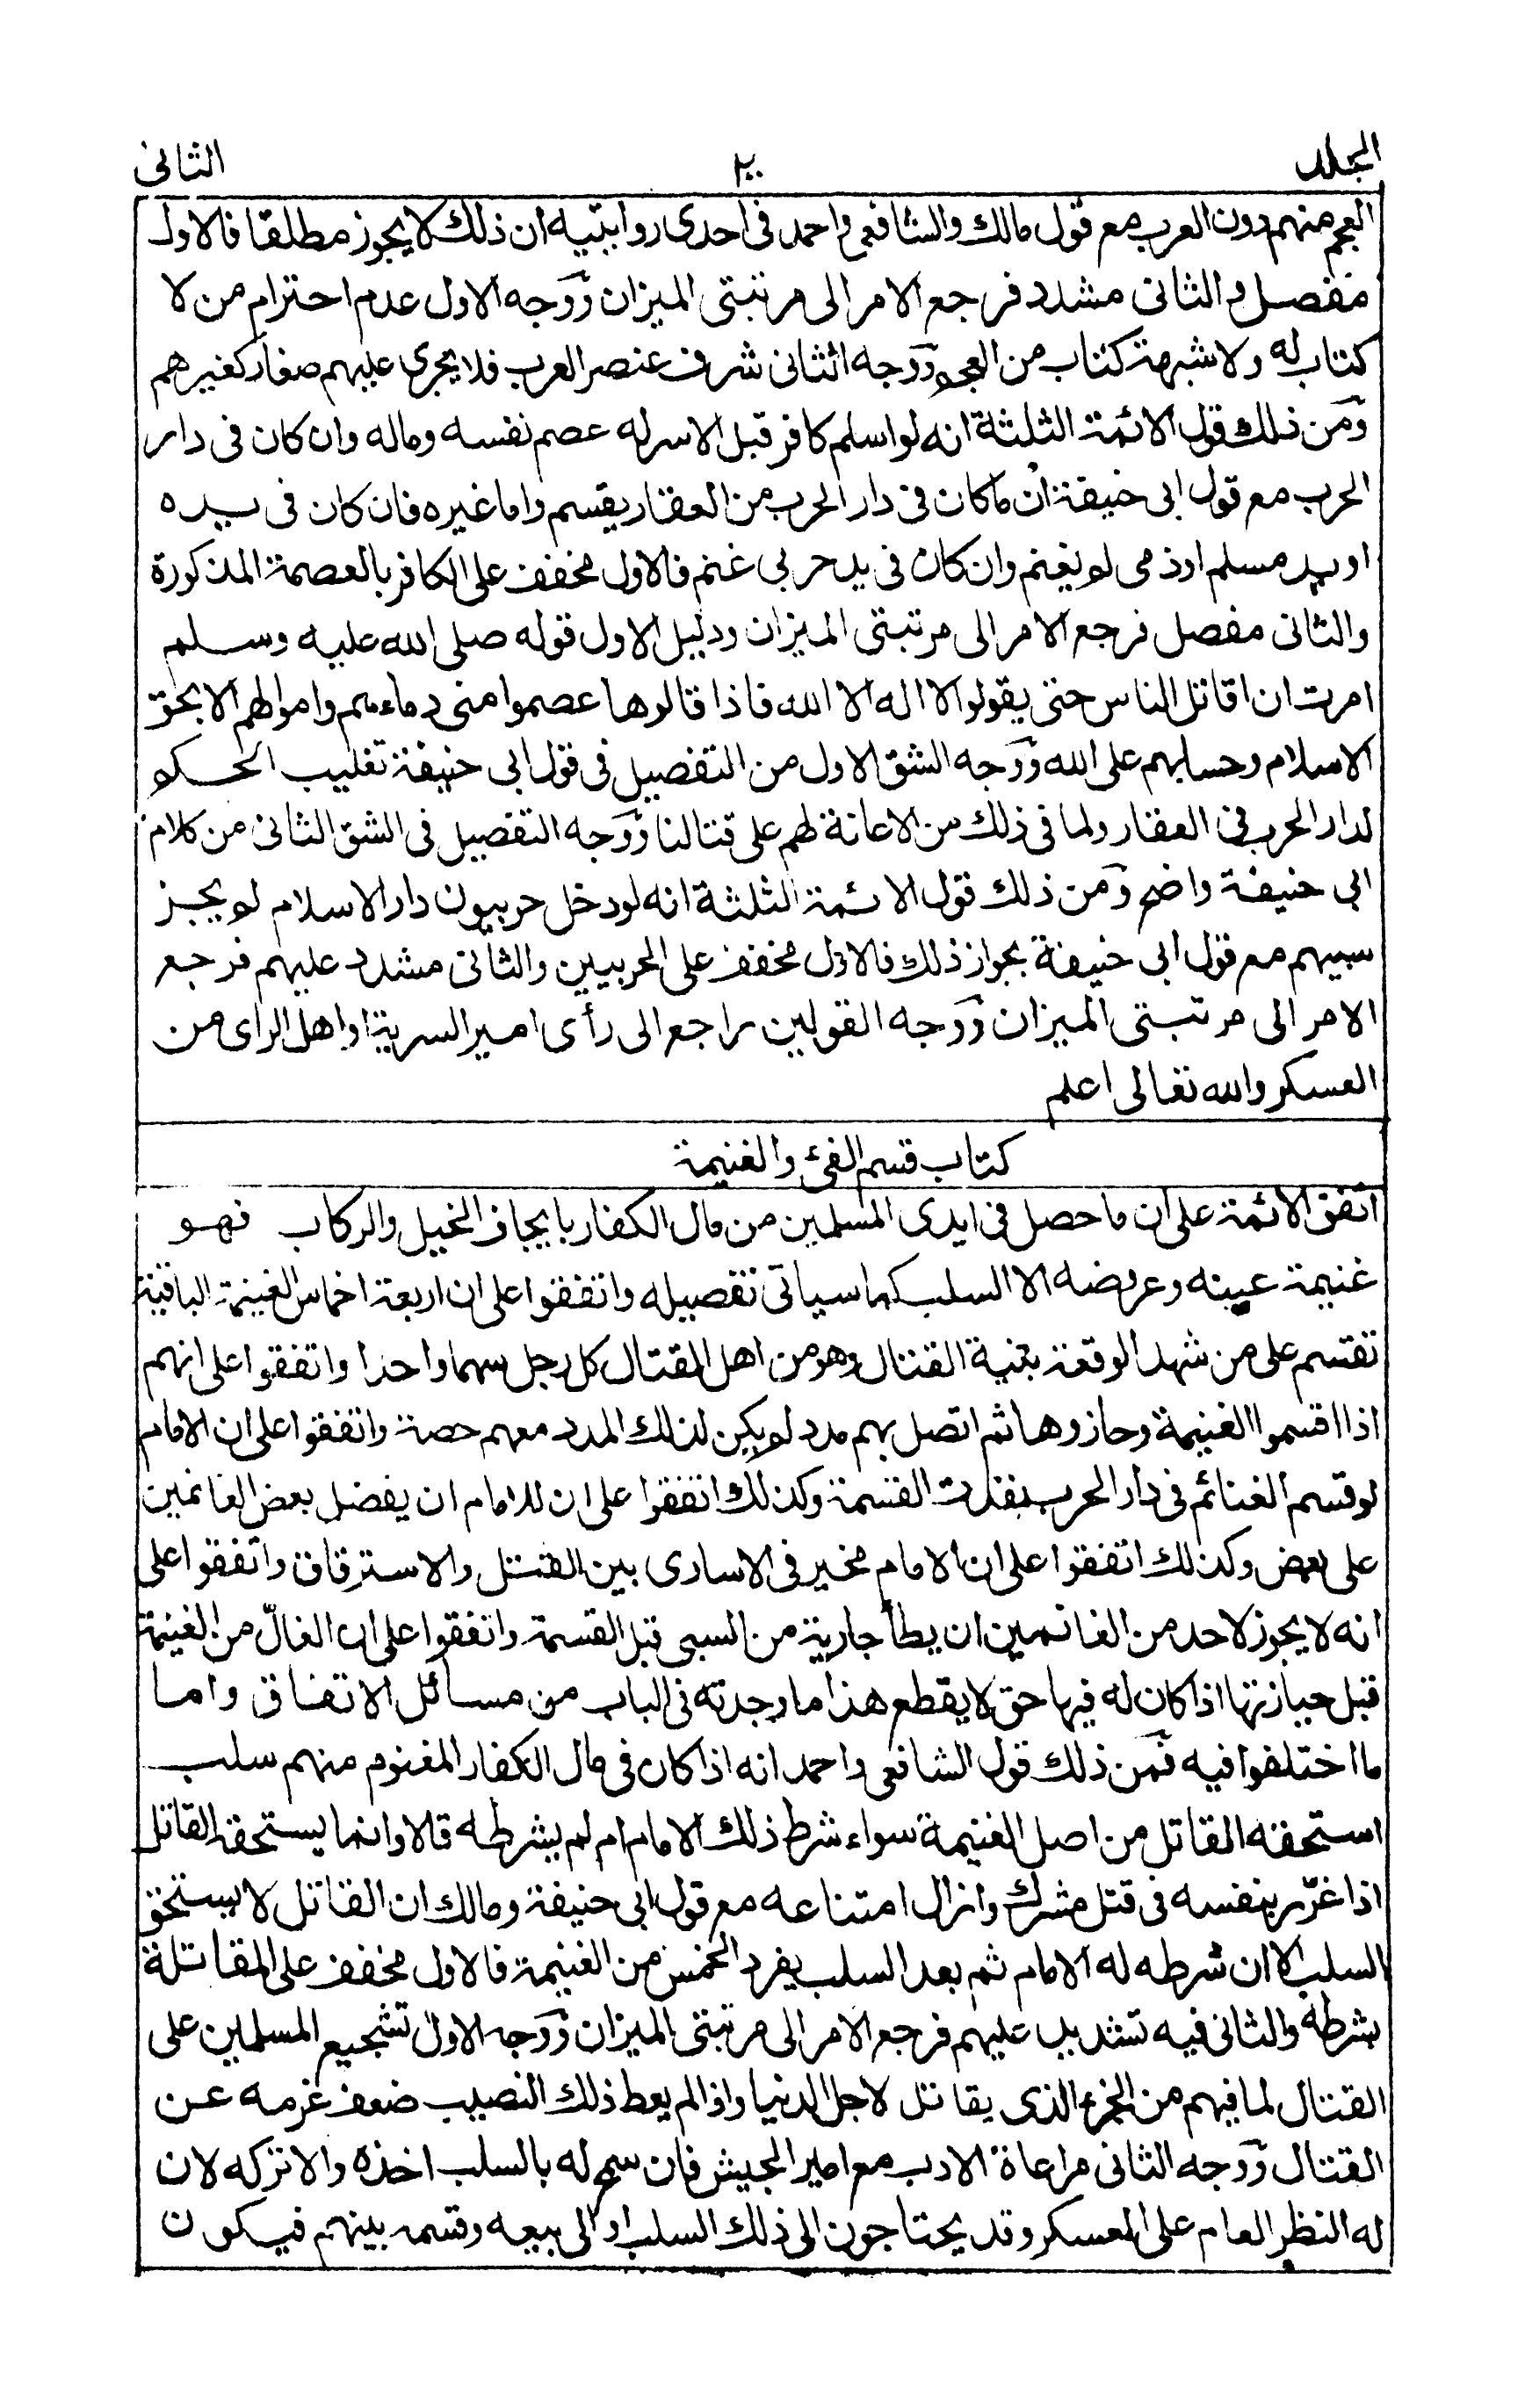 المجلد
٢٠٠
الثانى
العجم منهم دون العرب مع قول مالك والشافعى واحمد فى احدى روايتيه ان ذلك لا يجوز مطلقا فالاول
مفصل والثانى مشدد فرجع الامر الى مرتبتى الميزان ووجه الاول عدم احترام من لا
كتاب له ولا شبهة كتاب من العجم ووجه الثانى شرف عنصر العرب فلا يجرى عليهم صغار كغيرهم
ومن ذلك قول الائمة الثلثة انه لو اسلم كافر قبل الاسر له عصم نفسه وماله وان كان فى دار
الحرب مع قول ابى حنيفة ان ما كان فى دار الحرب من العقار يقسم واما غيره فان كان فى يده
او يد مسلم او ذمى لم يغنم وان كان فى يد حربى غنم فالاول مخفف على الكافر بالعصمة المذكورة
والثانى مفصل فرجع الامر الى مرتبتى الميزان ودليل الاول قوله صلى الله عليه وسلم
امرت ان اقاتل الناس حتى يقولوا لا اله الا الله فاذا قالوها عصموا منى دماءهم واموالهم الا بحق
الاسلام وحسابهم على الله ووجه الشق الاول من التفصيل فى قول ابى حنيفة تغليب الحكم
لدار الحرب فى العقار ولما فى ذلك من الاعانة لهم على قتالنا ووجه التفصيل فى الشق الثانى من كلام
ابى حنيفة واضح ومن ذلك قول الائمة الثلثة انه لو دخل حربيون دار الاسلام لم يجز
سبيهم مع قول ابى حنيفة بجواز ذلك فالاول مخفف على الحربيين والثانى مشدد عليهم فرجع
الامر الى مرتبتى الميزان ووجه القولين راجع الى رأى امير السرية او اهل الراى من
العسكر والله تعالى اعلم
كتاب قسم الفئ والغنيمة
اتفق الائمة على ان ما حصل فى ايدى المسلمين من مال الكفار بايجاف الخيل والركاب فهو
غنيمة عينه وعرضه الا السلب كما سياتى تفصيله واتفقوا على ان اربعة اخماس الغنيمة الباقية
تقسم على من شهد الوقعة بنية القتال وهو من اهل القتال كل رجل سهما واحدا واتفقوا على انهم
اذا اقسموا الغنيمة وحازوها ثم اتصل بهم مدد لم يكن لذلك المدد معهم حصة واتفقوا على ان الامام
لو قسم الغنائم فى دار الحرب نفذت القسمة وكذلك اتفقوا على ان للامام ان يفضل بعض الغانمين
على بعض وكذلك اتفقوا على ان الامام مخير فى الاسارى بين القتل والاسترقاق واتفقوا على
انه لا يجوز لاحد من الغانمين ان يطأ جارية من السبى قبل القسمة واتفقوا على ان الغالّ من الغنيمة
قبل حيازتها اذا كان له فيها حق لا يقطع هذا ما وجدته فى الباب من مسائل الاتفاق واما
ما اختلفوا فيه فمن ذلك قول الشافعى واحمد انه اذا كان فى مال الكفار المغنوم منهم سلب
استحقه القاتل من اصل الغنيمة سواء شرط ذلك الامام ام لم يشرطه قالا وانما يستحقه القاتل
اذا غرّر بنفسه فى قتل مشرك وازال امتناعه مع قول ابى حنيفة ومالك ان القاتل لا يستحق
السلب الا ان شرطه له الامام ثم بعد السلب يفرد الخمس من الغنيمة فالاول مخفف على المقاتلة
بشرطه والثانى فيه تشديد عليهم فرجع الامر الى مرتبتى الميزان ووجه الاول تشجيع المسلمين على
القتال لما فيهم من الجزء الذى يقاتل لاجل الدنيا واذا لم يعط ذلك النصيب ضعف عزمه عن
القتال ووجه الثانى مراعاة الادب مع امير الجيش فان سمح له بالسلب اخذه والا تركه لان
له النظر العام على العسكر وقد يحتاجون الى ذلك السلب او الى بيعه وقسمه بينهم فيكون